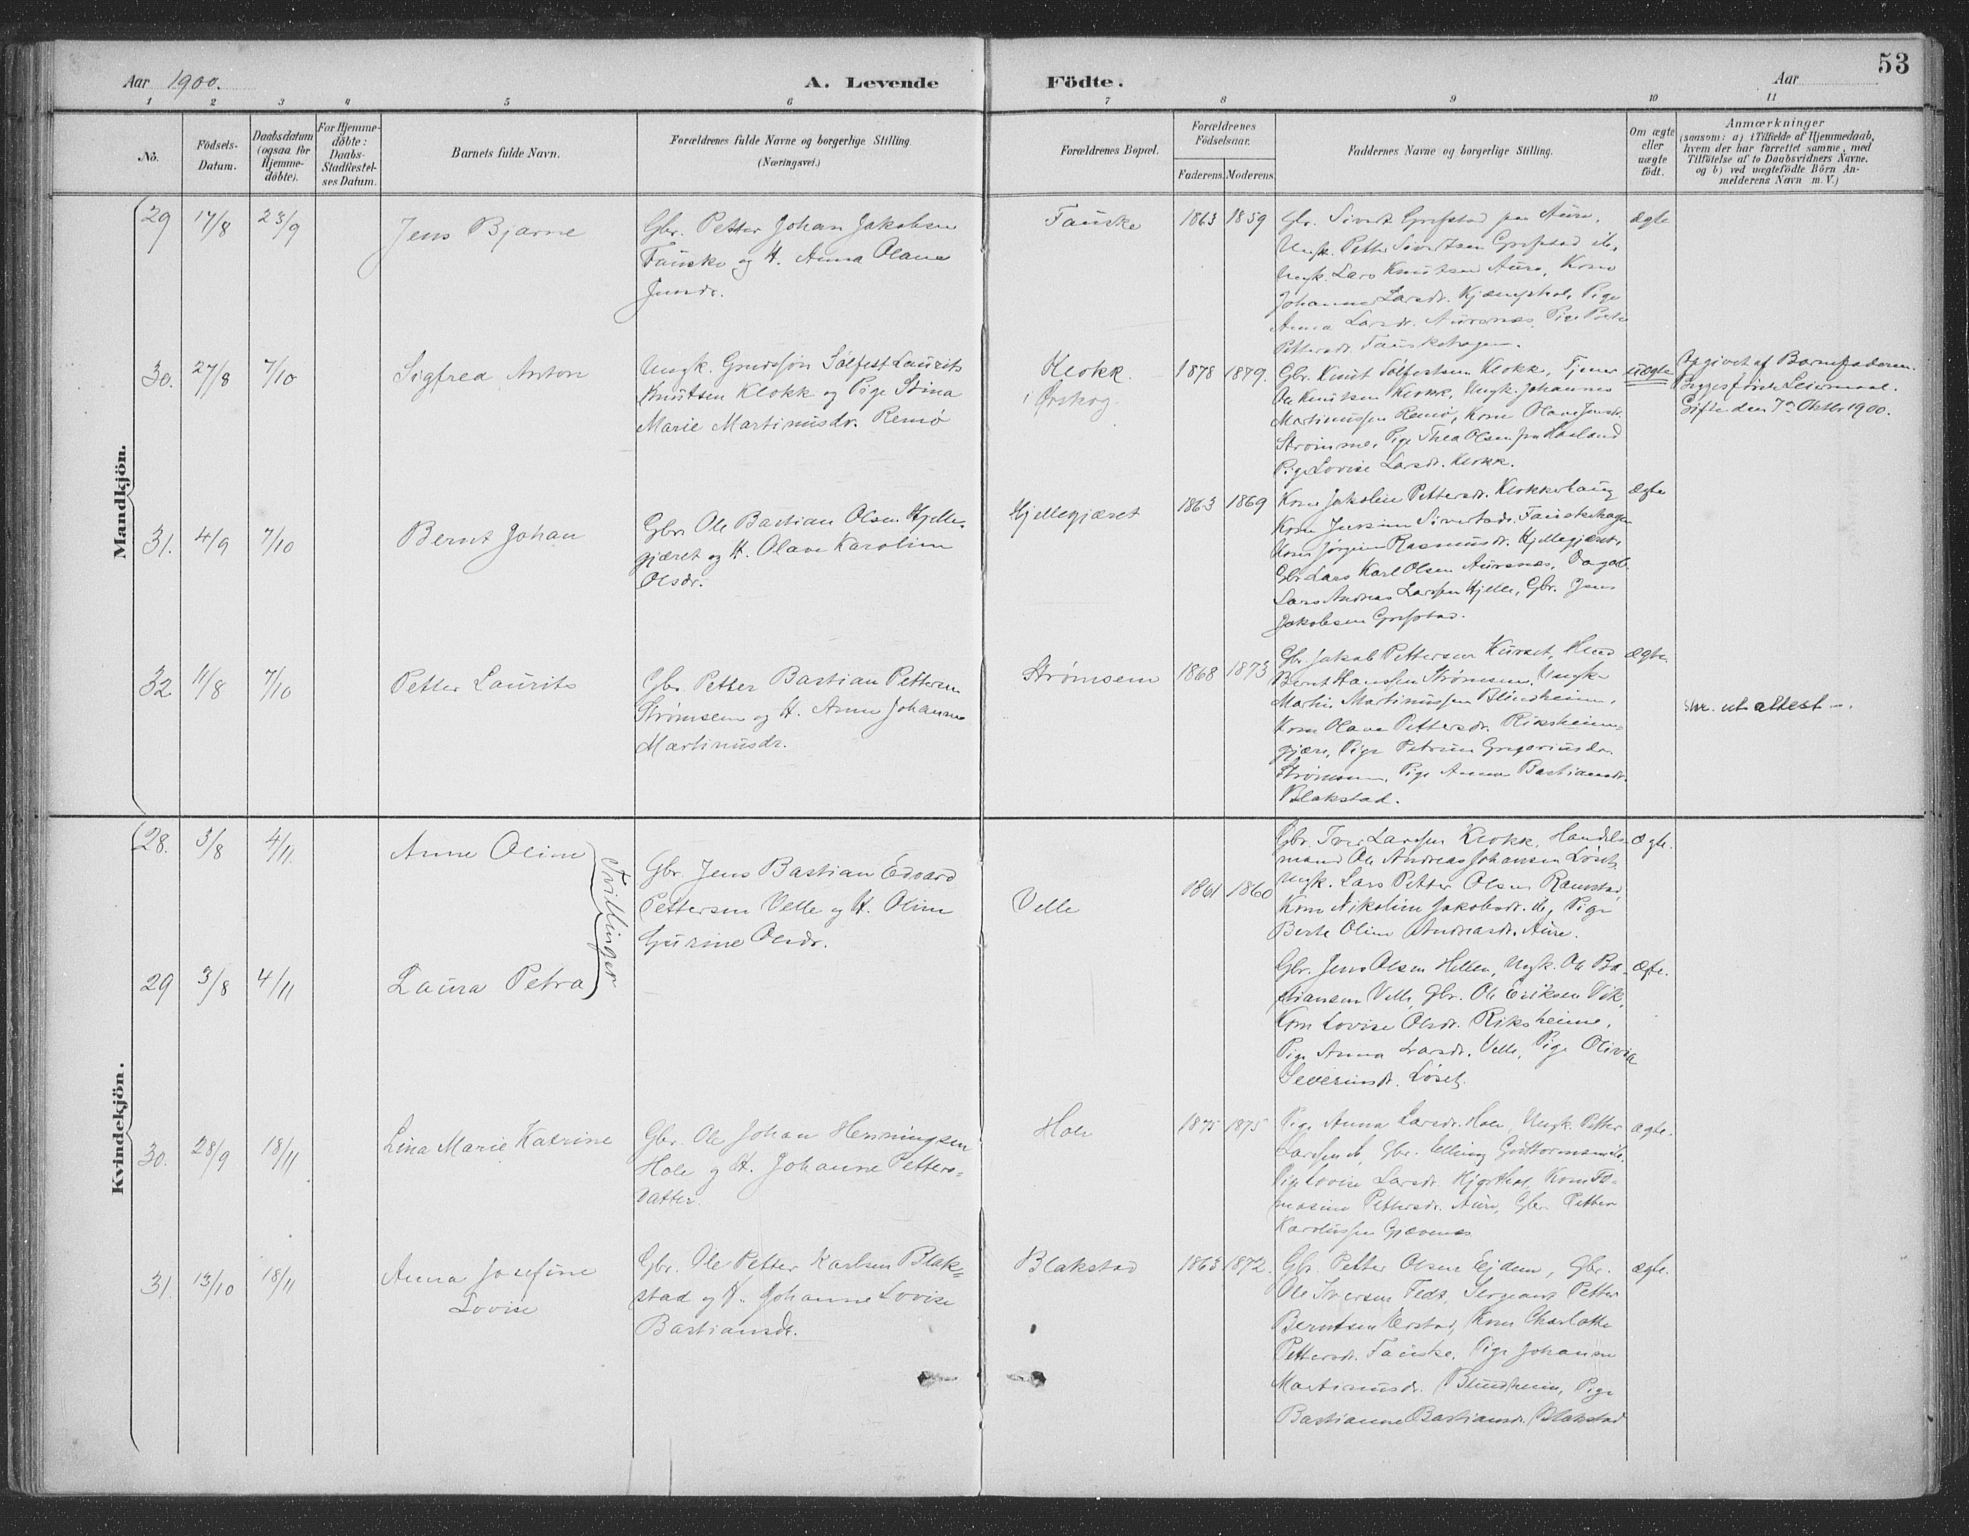 53
Aar 1900.
A. Levende
Födte.
Aar
1 2 3 4 5 6 7 8 9 10 11
No.
Födsels-
Datum.
Daabsdatum
(ogsaa for
Hjemme-
döbte).
For Hjemme-
döbte:
Daabs-
Stadfæstel-
ses Datum.
Barnets fulde Navn.
Forældrenes fulde Navne og borgerlige Stilling.
(Næringsvei.)
Forældrenes Bopæl.
Forældrenes
Födselsaar.
Faderens. Moderens.
Faddernes Navne og borgerlige Stilling.
Om ægte
eller
uægte
födt.
Anmærkninger
(saasom: a) i Tilfælde af Hjemmedaab,
hvem der har forrettet samme, med
Tilföielse af to Daabsvidners Navne.
og b) ved uægtefödte Börn An-
melderens Navn m. V.)
Mandkjön.
29 17/8 23/9
Jens Bjarne
Gbr. Petter Johan Jakobsen
Fauske og H. Anna Olava
Jensdr.
Fauske
1863 1859
Gbr. Sivert Grebstad paa Aure,
Ungk. Petter Sivertsen Grebstad ib,
Ungk. Lars Knutsen Aure, Kone
Johanne Larsdr. Kjæmpehol, Pige
Anna Larsdr. Aurenæs, Pige
Pettersdr. Fauskehagen.
ægte
30. 27/8 7/10
Sigfred Anton
Ungk. Sølfest Laurits
Knutsen Klokk og Pige Stina
Marie Martinusdr. Remø
Klokk
i Ørskog.
1878 1879.
Gbr. Knut Sølfestsen Klokk, Tjener
Ole Knutsen Klokk, Ungk. Johannes
Martinussen Remø, Kone Olave Jensdr.
Strømme, Pige Thea Olsen fra
Pige Lovise Larsdr. Klokk.
uægte
Opgivet af Barnefaderen.
Begges første Leiermaal.
Gifte den 7de Oktbr 1900.
31. 4/9 7/10
Bernt Johan
Gbr. Ole Bastian Olsen Hjelle-
gjæret og H. Olave Karoline
Olsdr.
Hjellegjæret
1863 1869
Kone Jakobine Pettersdr. Klokkerhaug
Kone Sivertsdr. Fauskehagen
Kone Jørgine Rasmusdr. Hjellegjæret,
Gbr. Lars Karl Olsen Aurenæs,
Lars Andreas Larssen Hjelle, Gbr. Jens
Jakobsen Grebstad.
ægte
32 11/8 7/10
Petter Laurits
Gbr. Petter Bastian Pettersen
Strømsem og H. Anne Johanne
Martinusdr.
Strømsem
1868 1873
Gbr. Jakob Pettersen Kurset,
Bernt Hanssen Strømsem, Ungk.
Martin Martinussen Blindheim,
Kone Olave Pettersdr. Riksheim-
gjære, Pige Petrine Gregoriusdr.
Strømsem, Pige Anna Bastiansdr.
Blakstad.
ægte
utattest
Kvindekjön.
28. 3/8 4/11
Anne Oline
Tvillinger
Gbr. Jens Bastian Edvard
Pettersen Velle og H. Oline
Gurine Olsdr.
Velle
1861 1860
Gbr. Iver Larssen Klokk, Handels-
mand Ole Andreas Johansen Løset,
Ungk. Lars Petter Olsen Ramstad,
Kone Nikoline Jakobsdr. ib, Pige
Berte Oline Andreasdr. Aure.
ægte.
29 3/8 4/11
Laura Petra
Gbr. Jens Olsen Hellen, Ungk. Ole Ba-
stiansen Velle, Gbr. Ole Eriksen Vik,
Kone Lovise Olsdr. Riksheim,
Pige Anna Larsdr. Velle, Pige Olivia
Severinsdr. Løset.
ægte.
30. 28/9 18/11
Lina Marie Katrine
Gbr. Ole Johan Henningsen
Hole og H. Johanne Petters-
datter.
Hole
1875 1875
Pige Anna Larsdr. Hole, Ungk. Petter
Larssen ib, Gbr. Elling Guttormsen ib.
Pige Lovise Larsdr. Hjorthol, Kone To-
masine Pettersdr. Aure, Gbr. Petter
Karolussen Gjævenes
ægte.
31. 13/10 18/11
Anna Josefine
Lovise
Gbr. Ole Petter Karlsen Blak-
stad og H. Johanne Lovise
Bastiansdr.
Blakstad
1863 1872.
Gbr. Petter Olsen Ejdem, Gbr.
Ole Iversen Fedt, Sergeant Petter
Berntsen Erstad, Kone Charlotte
Pettersdr. Fauske, Pige Johanne
Martinusdr. Blindheim, Pige
Bastianne Bastiansdr. Blakstad
ægte.